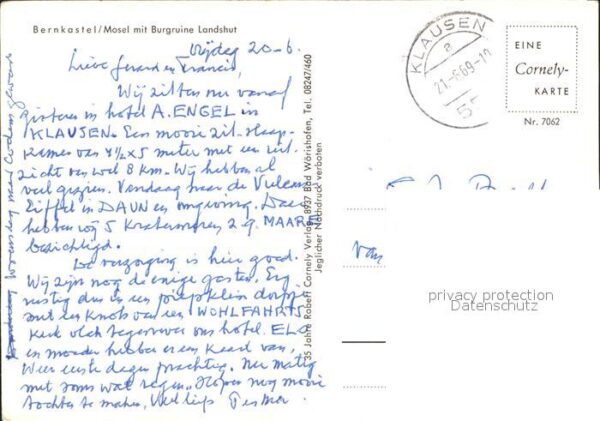 Bernkastel/Mosel mit Burgruine Landshut
Vrijdag 20-6.
Lieve Gerard en Francis,
Wij zitten nu vanaf
gisteren in hotel A. ENGEL in
KLAUSEN. Een mooie zit-slaap-
kamer van 4½ x 5 meter met een uit-
zicht van wel 8 km. Wij hebben al
veel gezien. Vandaag naar de Vulcan
Eiffel in DAUN en omgeving. Daar
hebben wij 5 Kratermeren z.g. MAARE
bezichtigd.
De verzorging is hier goed.
Wij zijn nog de enige gasten. Erg
rustig dus in een piepklein dorpje
met een knots van een WOHLFAHRTS
Kerk vlak tegenover ons hotel. ELS
en moeder hebben er een kaars van,
Weer eerste dagen prachtig. Nu matig
met soms wat regen. Hopen nog mooie
tochten te maken, Veel liefs
35 Jahre Robert Cornely Verlag, 8937 Bad Wörishofen, Tel. 08247/460
Jeglicher Nachdruck verboten
KLAUSEN
a
21.-6.69-10
55
EINE
Cornely-
KARTE
Nr. 7062
van
privacy protection
Datenschutz